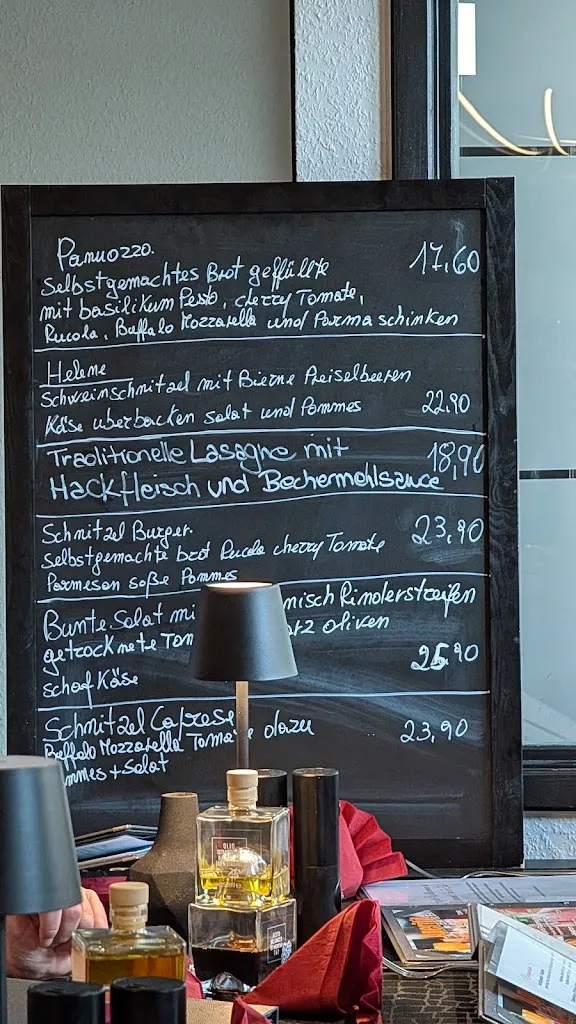 Panuozzo. 17,60
Selbstgemachtes Brot geffüllte
mit basilikum Pesto, cherry Tomate,
Rucola, Buffalo Mozzarella und Parma schinken
Helene
Schweinschnitzel mit Bierne Preiselbeeren
Käse uberbacken salat und Pommes 22,90
Traditionelle Lasagne mit 18,90
Hackfleisch und Bechermehlsauce
Schnitzel Burger. 23,90
Selbstgemachte brot Rucola cherry Tomate
Parmesan soße Pommes
Bunte Salat mi misch Rinderstreifen
getrocknete Tom oliven
schaf Käse 25,90
Schnitzel Caprese dazu 23,90
Buffalo Mozzarella Tomate
mmes + Salat
OLIO